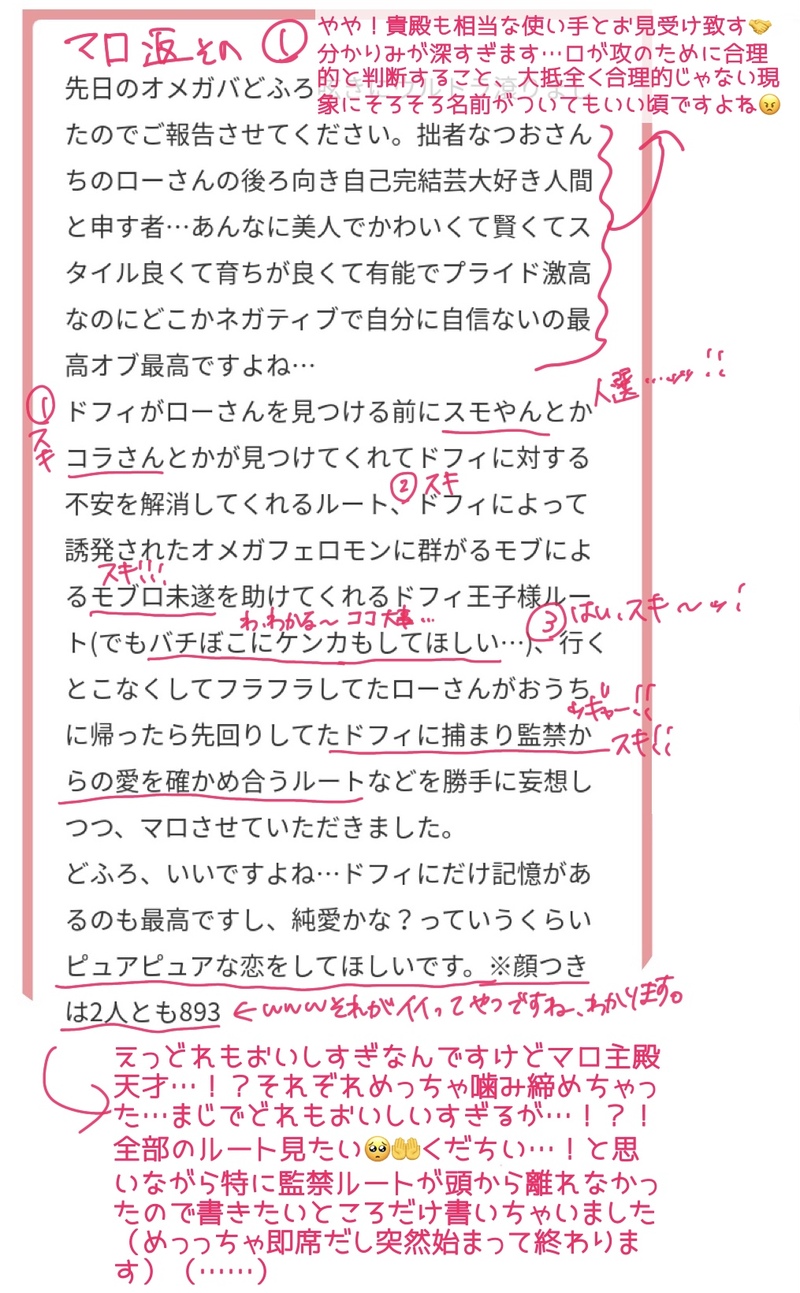 マロ返その①
やや！貴殿も相当な使い手とお見受け致す🤝
分かりみが深すぎます…ロが攻のために合理
的と判断すること、大抵全く合理的じゃない現
象にそろそろ名前がついてもいい頃ですよね😠
先日のオメガバどふろ
たのでご報告させてください。拙者なつおさん
ちのローさんの後ろ向き自己完結芸大好き人間
と申す者…あんなに美人でかわいくて賢くてス
タイル良くて育ちが良くて有能でプライド激高
なのにどこかネガティブで自分に自信ないの最
高オブ最高ですよね…
人選…ッッ!!
①スキ
ドフィがローさんを見つける前にスモやんとか
コラさんとかが見つけてくれてドフィに対する
②スキ
不安を解消してくれるルート、ドフィによって
誘発されたオメガフェロモンに群がるモブによ
スキ!!!
るモブロ未遂を助けてくれるドフィ王子様ルー
わ、わかる〜ココ大事…
③はい、スキ〜ッ!
ト(でもバチぼこにケンカもしてほしい…)、行く
とこなくしてフラフラしてたローさんがおうち
ッギャー!!
に帰ったら先回りしてたドフィに捕まり監禁か
スキ!!
らの愛を確かめ合うルートなどを勝手に妄想し
つつ、マロさせていただきました。
どふろ、いいですよね…ドフィにだけ記憶があ
るのも最高ですし、純愛かな？っていうくらい
ピュアピュアな恋をしてほしいです。※顔つき
は2人とも893
←wwwそれがイイってやつですね、わかります。
えっどれもおいしすぎなんですけどマロ主殿
天才…！？それぞれめっちゃ噛み締めちゃっ
た…まじでどれもおいしいすぎるが…！？！
全部のルート見たい🥺🤲くだちい…！と思
いながら特に監禁ルートが頭から離れなかっ
たので書きたいところだけ書いちゃいました
（めっっちゃ即席だし突然始まって終わりま
す）（……）